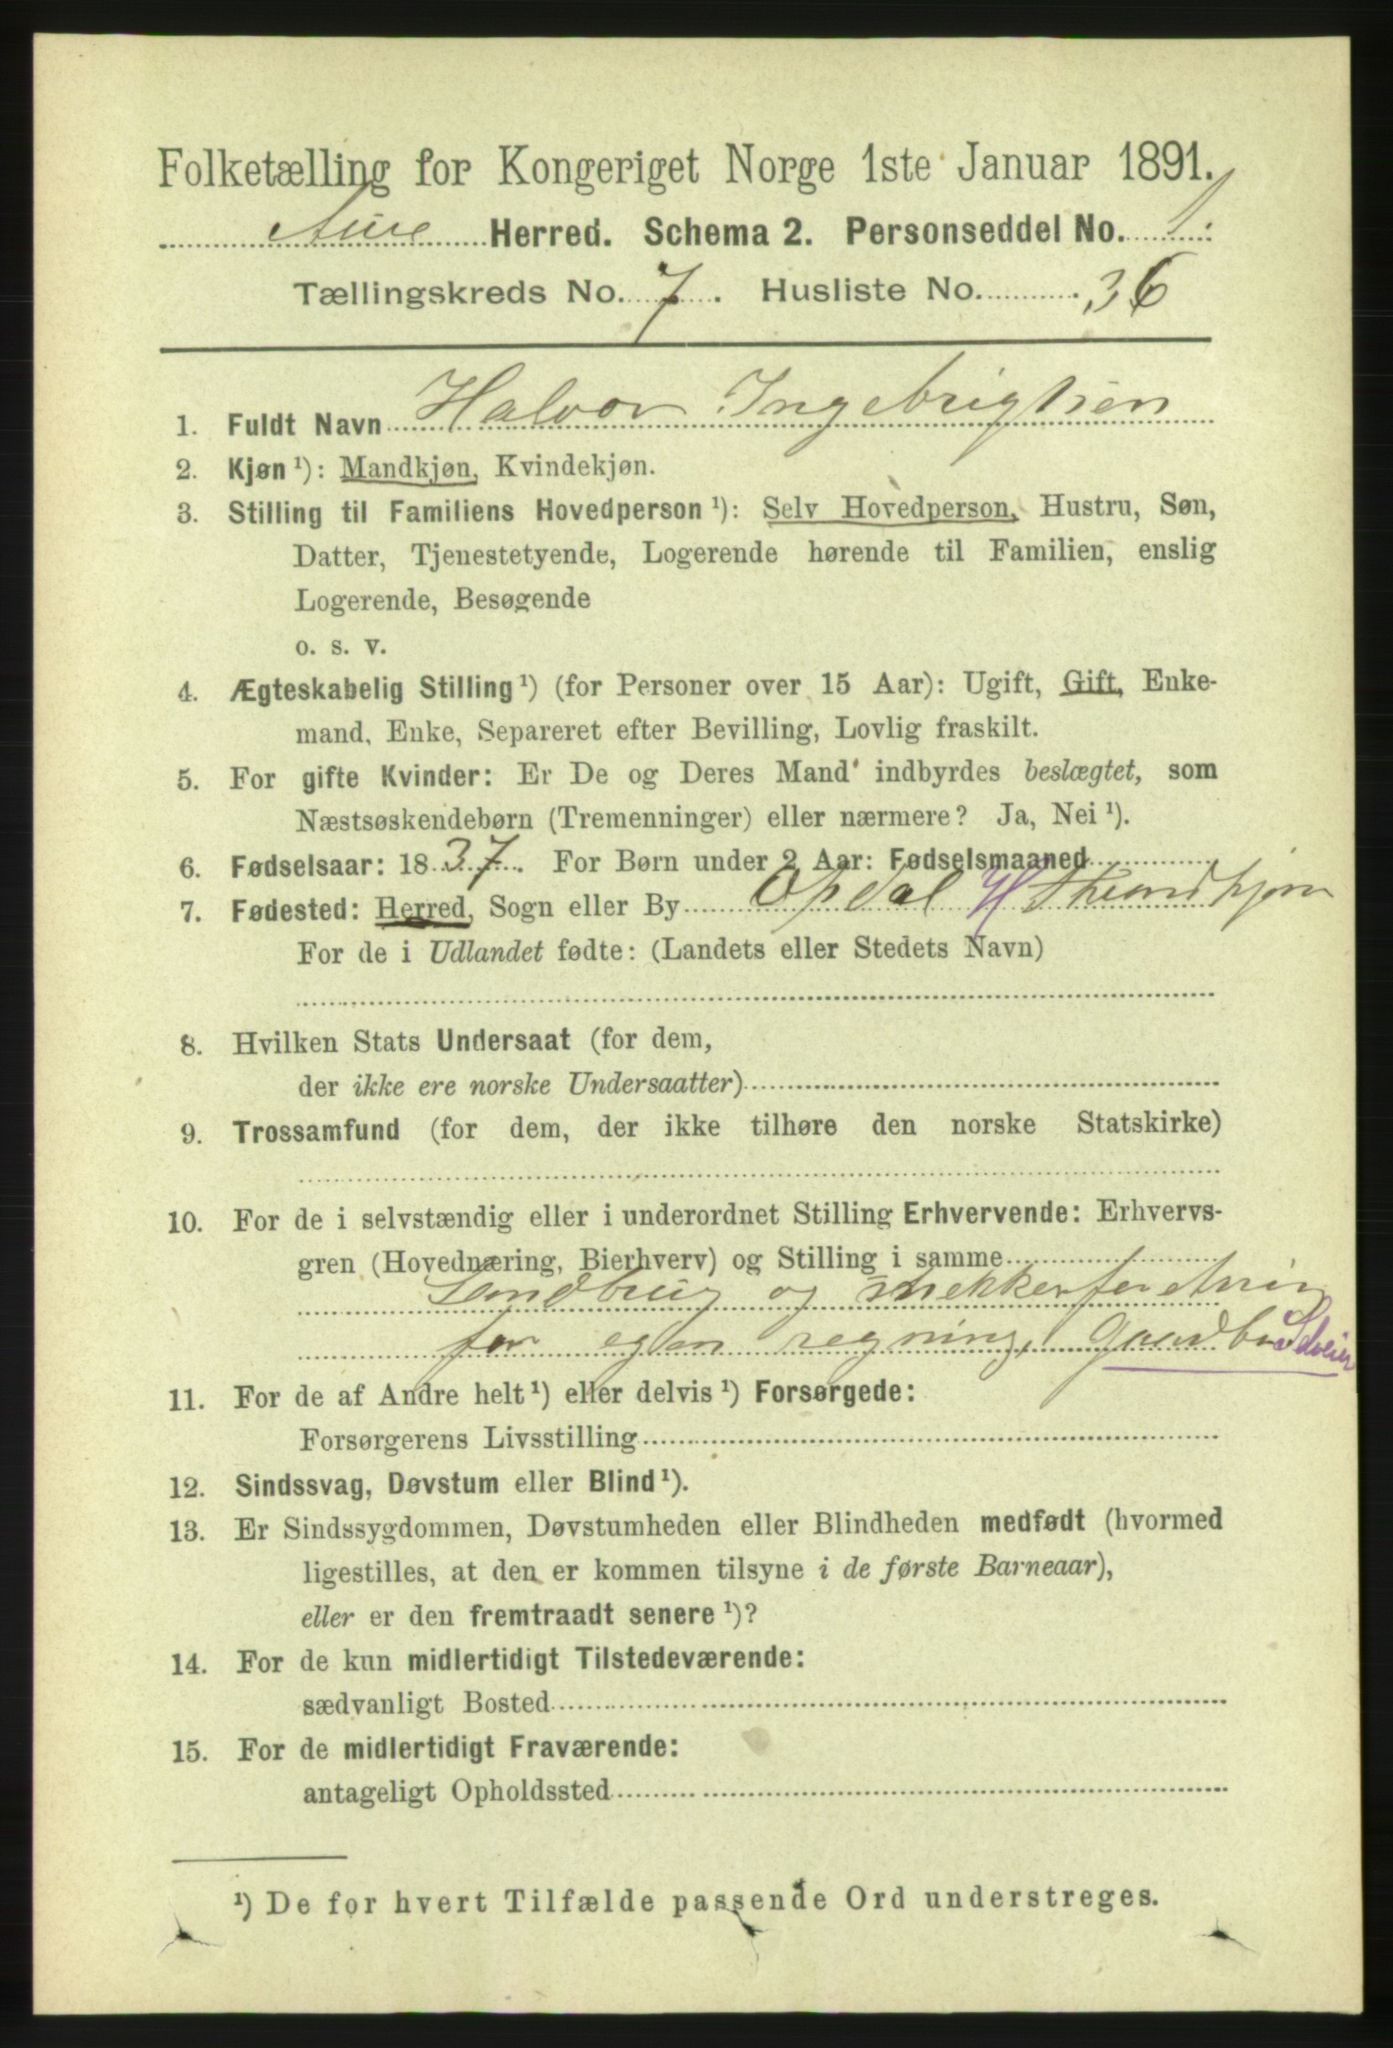 Folketælling for Kongeriget Norge 1ste Januar 1891.
Aure Herred. Schema 2. Personseddel No. 1.
Tællingskreds No. 7. Husliste No. 36
1. Fuldt Navn Halvor Ingebrigtsen
2. Kjøn ¹): Mandkjøn, Kvindekjøn.
3. Stilling til Familiens Hovedperson ¹): Selv Hovedperson, Hustru, Søn,
Datter, Tjenestetyende, Logerende hørende til Familien, enslig
Logerende, Besøgende
o. s. v.
4. Ægteskabelig Stilling ¹) (for Personer over 15 Aar): Ugift, Gift, Enke-
mand, Enke, Separeret efter Bevilling, Lovlig fraskilt.
5. For gifte Kvinder: Er De og Deres Mand indbyrdes beslægtet, som
Næstsøskendebørn (Tremenninger) eller nærmere? Ja, Nei ¹).
6. Fødselsaar: 1837. For Børn under 2 Aar: Fødselsmaaned
7. Fødested: Herred, Sogn eller By Opdal
For de i Udlandet fødte: (Landets eller Stedets Navn)
8. Hvilken Stats Undersaat (for dem,
der ikke ere norske Undersaatter)
9. Trossamfund (for dem, der ikke tilhøre den norske Statskirke)
10. For de i selvstændig eller i underordnet Stilling Erhvervende: Erhvervs-
gren (Hovednæring, Bierhverv) og Stilling i samme
og
for egen regning, Selveier
11. For de af Andre helt ¹) eller delvis ¹) Forsørgede:
Forsørgerens Livsstilling
12. Sindssvag, Døvstum eller Blind ¹).
13. Er Sindssygdommen, Døvstumheden eller Blindheden medfødt (hvormed
ligestilles, at den er kommen tilsyne i de første Barneaar),
eller er den fremtraadt senere ¹)?
14. For de kun midlertidigt Tilstedeværende:
sædvanligt Bosted
15. For de midlertidigt Fraværende:
antageligt Opholdssted
¹) De for hvert Tilfælde passende Ord understreges.